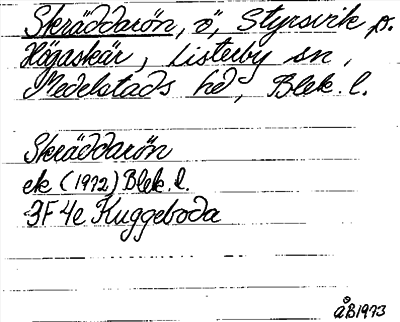 Skräddarön, ö, Styrsvik o.
Högaskär, Listerby sn,
Medelstads hd, Blek. l.
Skräddarön
ek (1972) Blek. l.
3F 4e Kuggeboda
ÅB1973